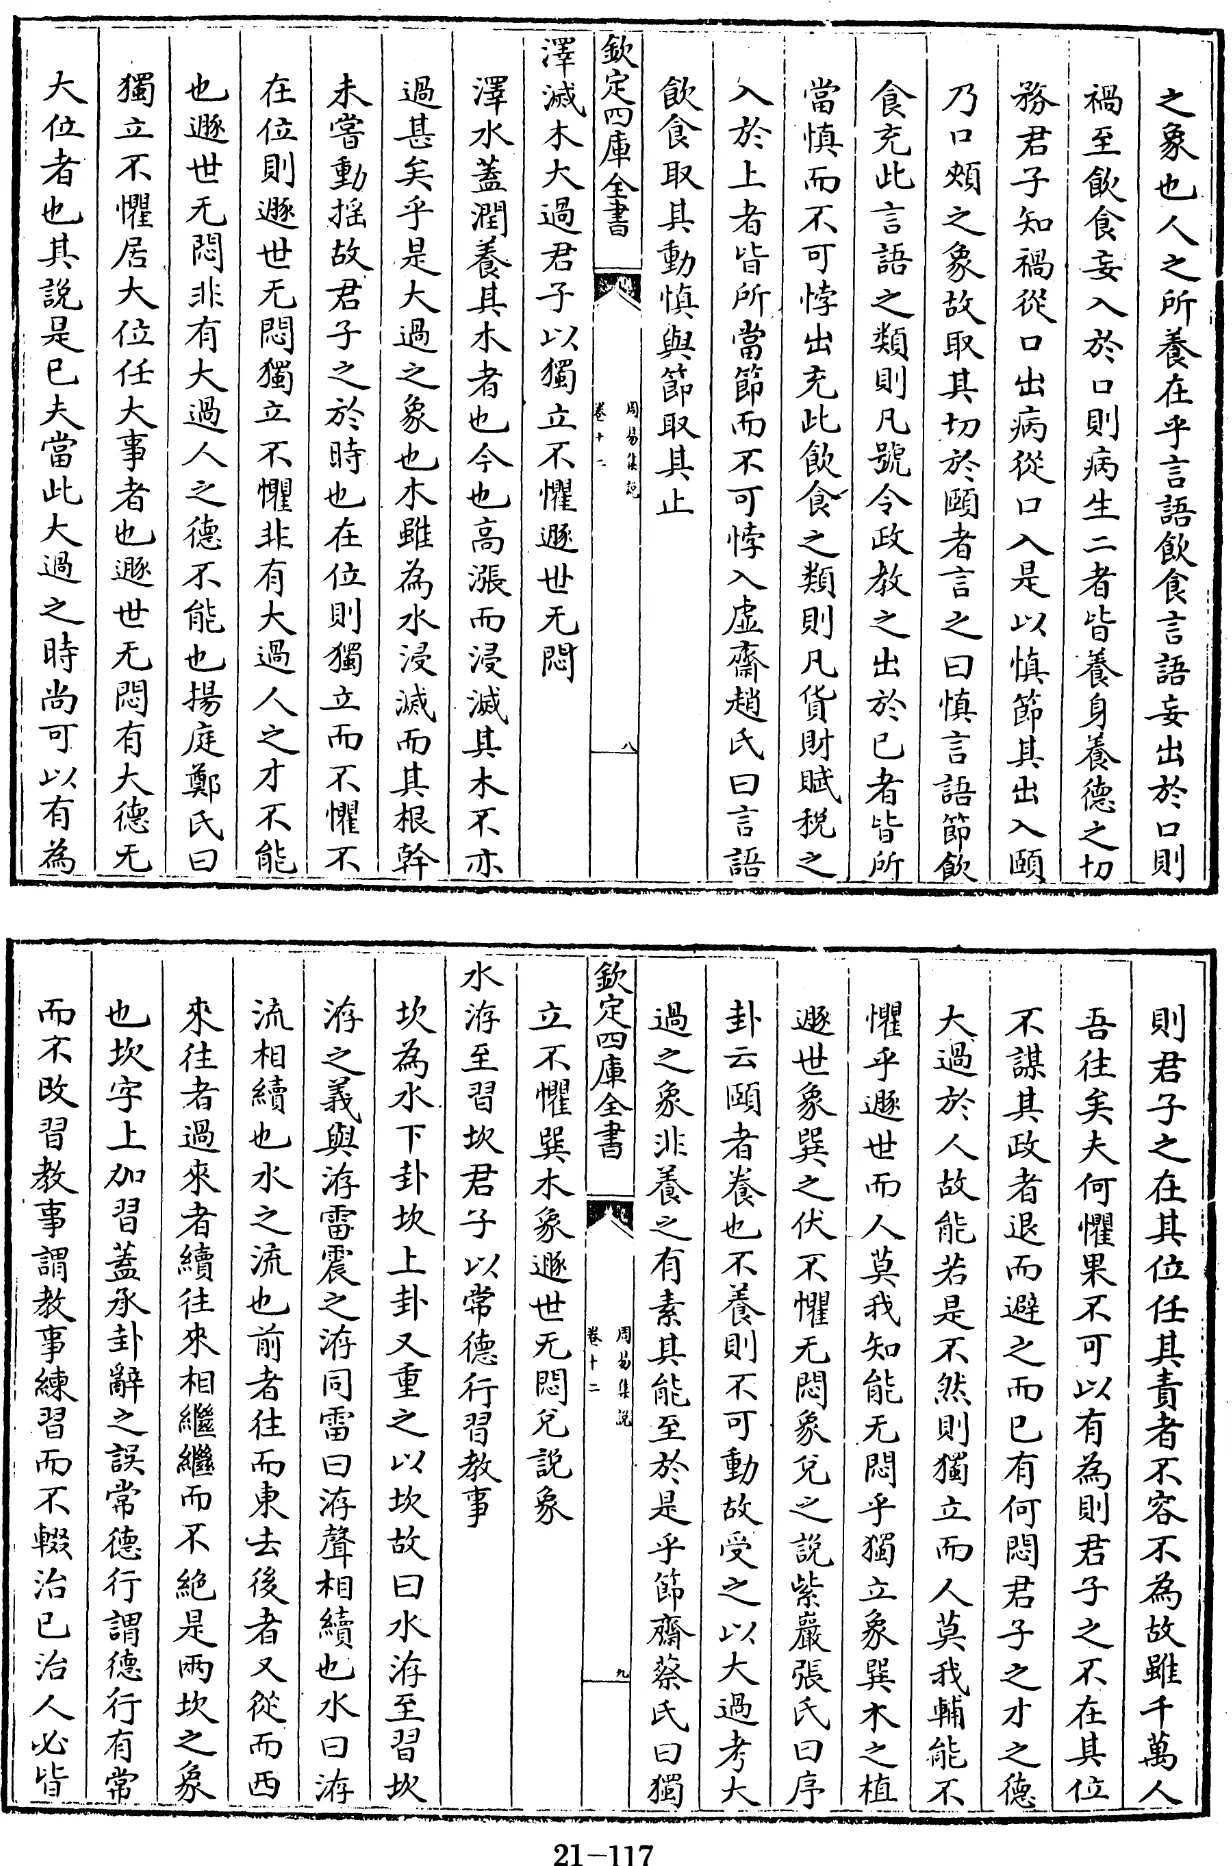 之象也人之所養在乎言語飲食言語妄出於口則
禍至飲食妄入於口則病生二者皆養身養德之切
務君子知禍從口出病從口入是以慎節其出入頤
乃口頰之象故取其切於頤者言之曰慎言語節飲
食充此言語之類則凡號令政教之出於已者皆所
當慎而不可悖出充此飲食之類則凡貨財賦稅之
入於上者皆所當節而不可悖入虛齋趙氏曰言語
飲食取其動慎與節取其止
欽定四庫全書
周易集說
卷十二
八
澤滅木大過君子以獨立不懼遯世无悶
澤水蓋潤養其木者也今也高漲而浸滅其木不亦
過甚矣乎是大過之象也木雖為水浸滅而其根幹
未嘗動揺故君子之於時也在位則獨立而不懼不
在位則遯世无悶獨立不懼非有大過人之才不能
也遯世无悶非有大過人之德不能也揚庭鄭氏曰
獨立不懼居大位任大事者也遯世无悶有大德无
大位者也其說是已夫當此大過之時尚可以有為
則君子之在其位任其責者不容不為故雖千萬人
吾往矣夫何懼果不可以有為則君子之不在其位
不謀其政者退而避之而已有何悶君子之才之德
大過於人故能若是不然則獨立而人莫我輔能不
懼乎遯世而人莫我知能无悶乎獨立象巽木之植
遯世象巽之伏不懼无悶象兌之說紫巖張氏曰序
卦云頤者養也不養則不可動故受之以大過考大
過之象非養之有素其能至於是乎節齋蔡氏曰獨
欽定四庫全書
周易集說
卷十二
九
立不懼巽木象遯世无悶兌說象
水洊至習坎君子以常德行習教事
坎為水下卦坎上卦又重之以坎故曰水洊至習坎
洊之義與洊雷震之洊同雷曰洊聲相續也水曰洊
流相續也水之流也前者往而東去後者又從而西
來往者過來者續往來相繼繼而不絕是兩坎之象
也坎字上加習蓋承卦辭之誤常德行謂德行有常
而不改習教事謂教事練習而不輟治已治人必皆
21-117